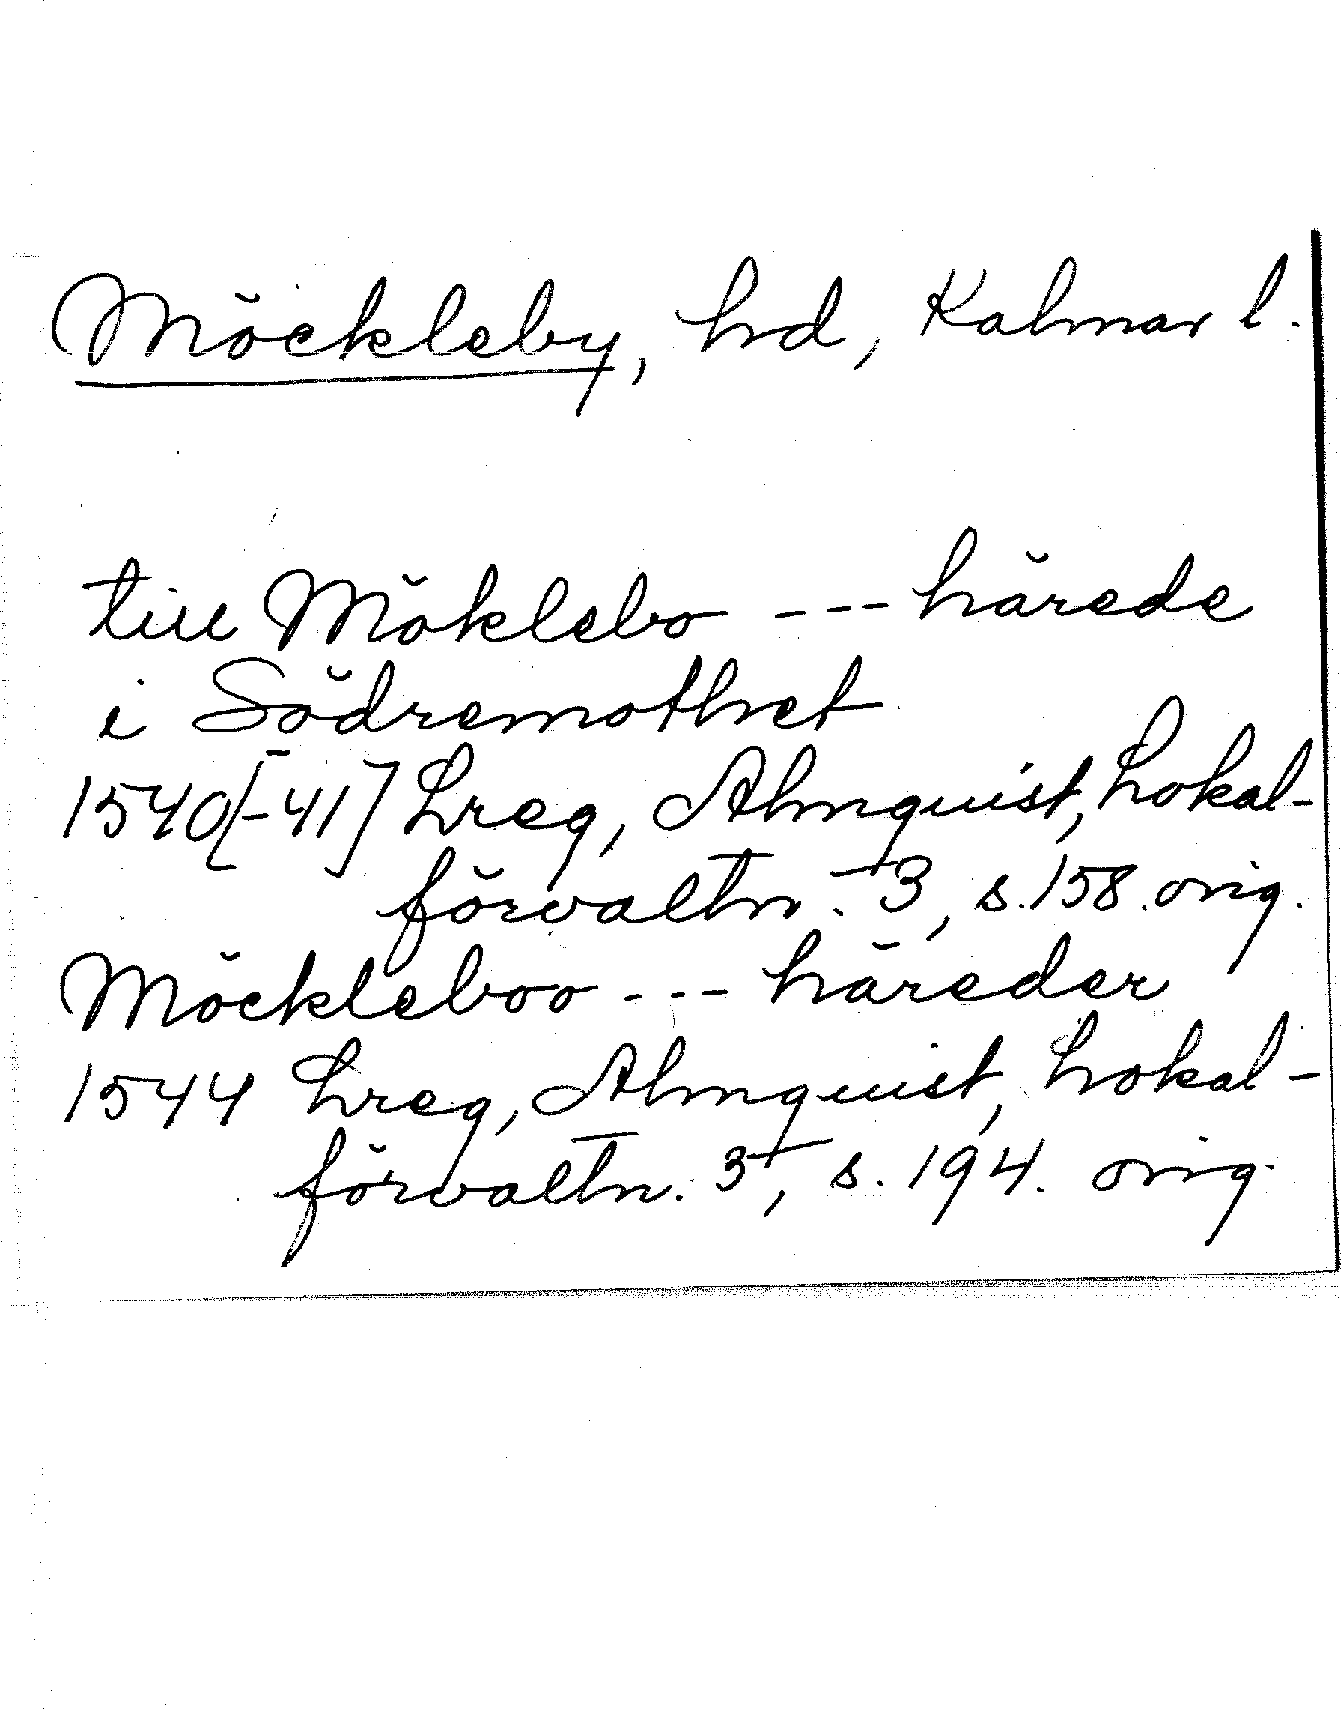 Möckleby, hd, Kalmar l.
till Möklebo --- härede
i Södremothet
1540[-41] Lreg, Almquist, Lokal-
förvaltn. 3, s. 158. orig.
Möckleboo --- häreder
1544 Lreg, Almquist, Lokal-
förvaltn. 3, s. 194. orig.